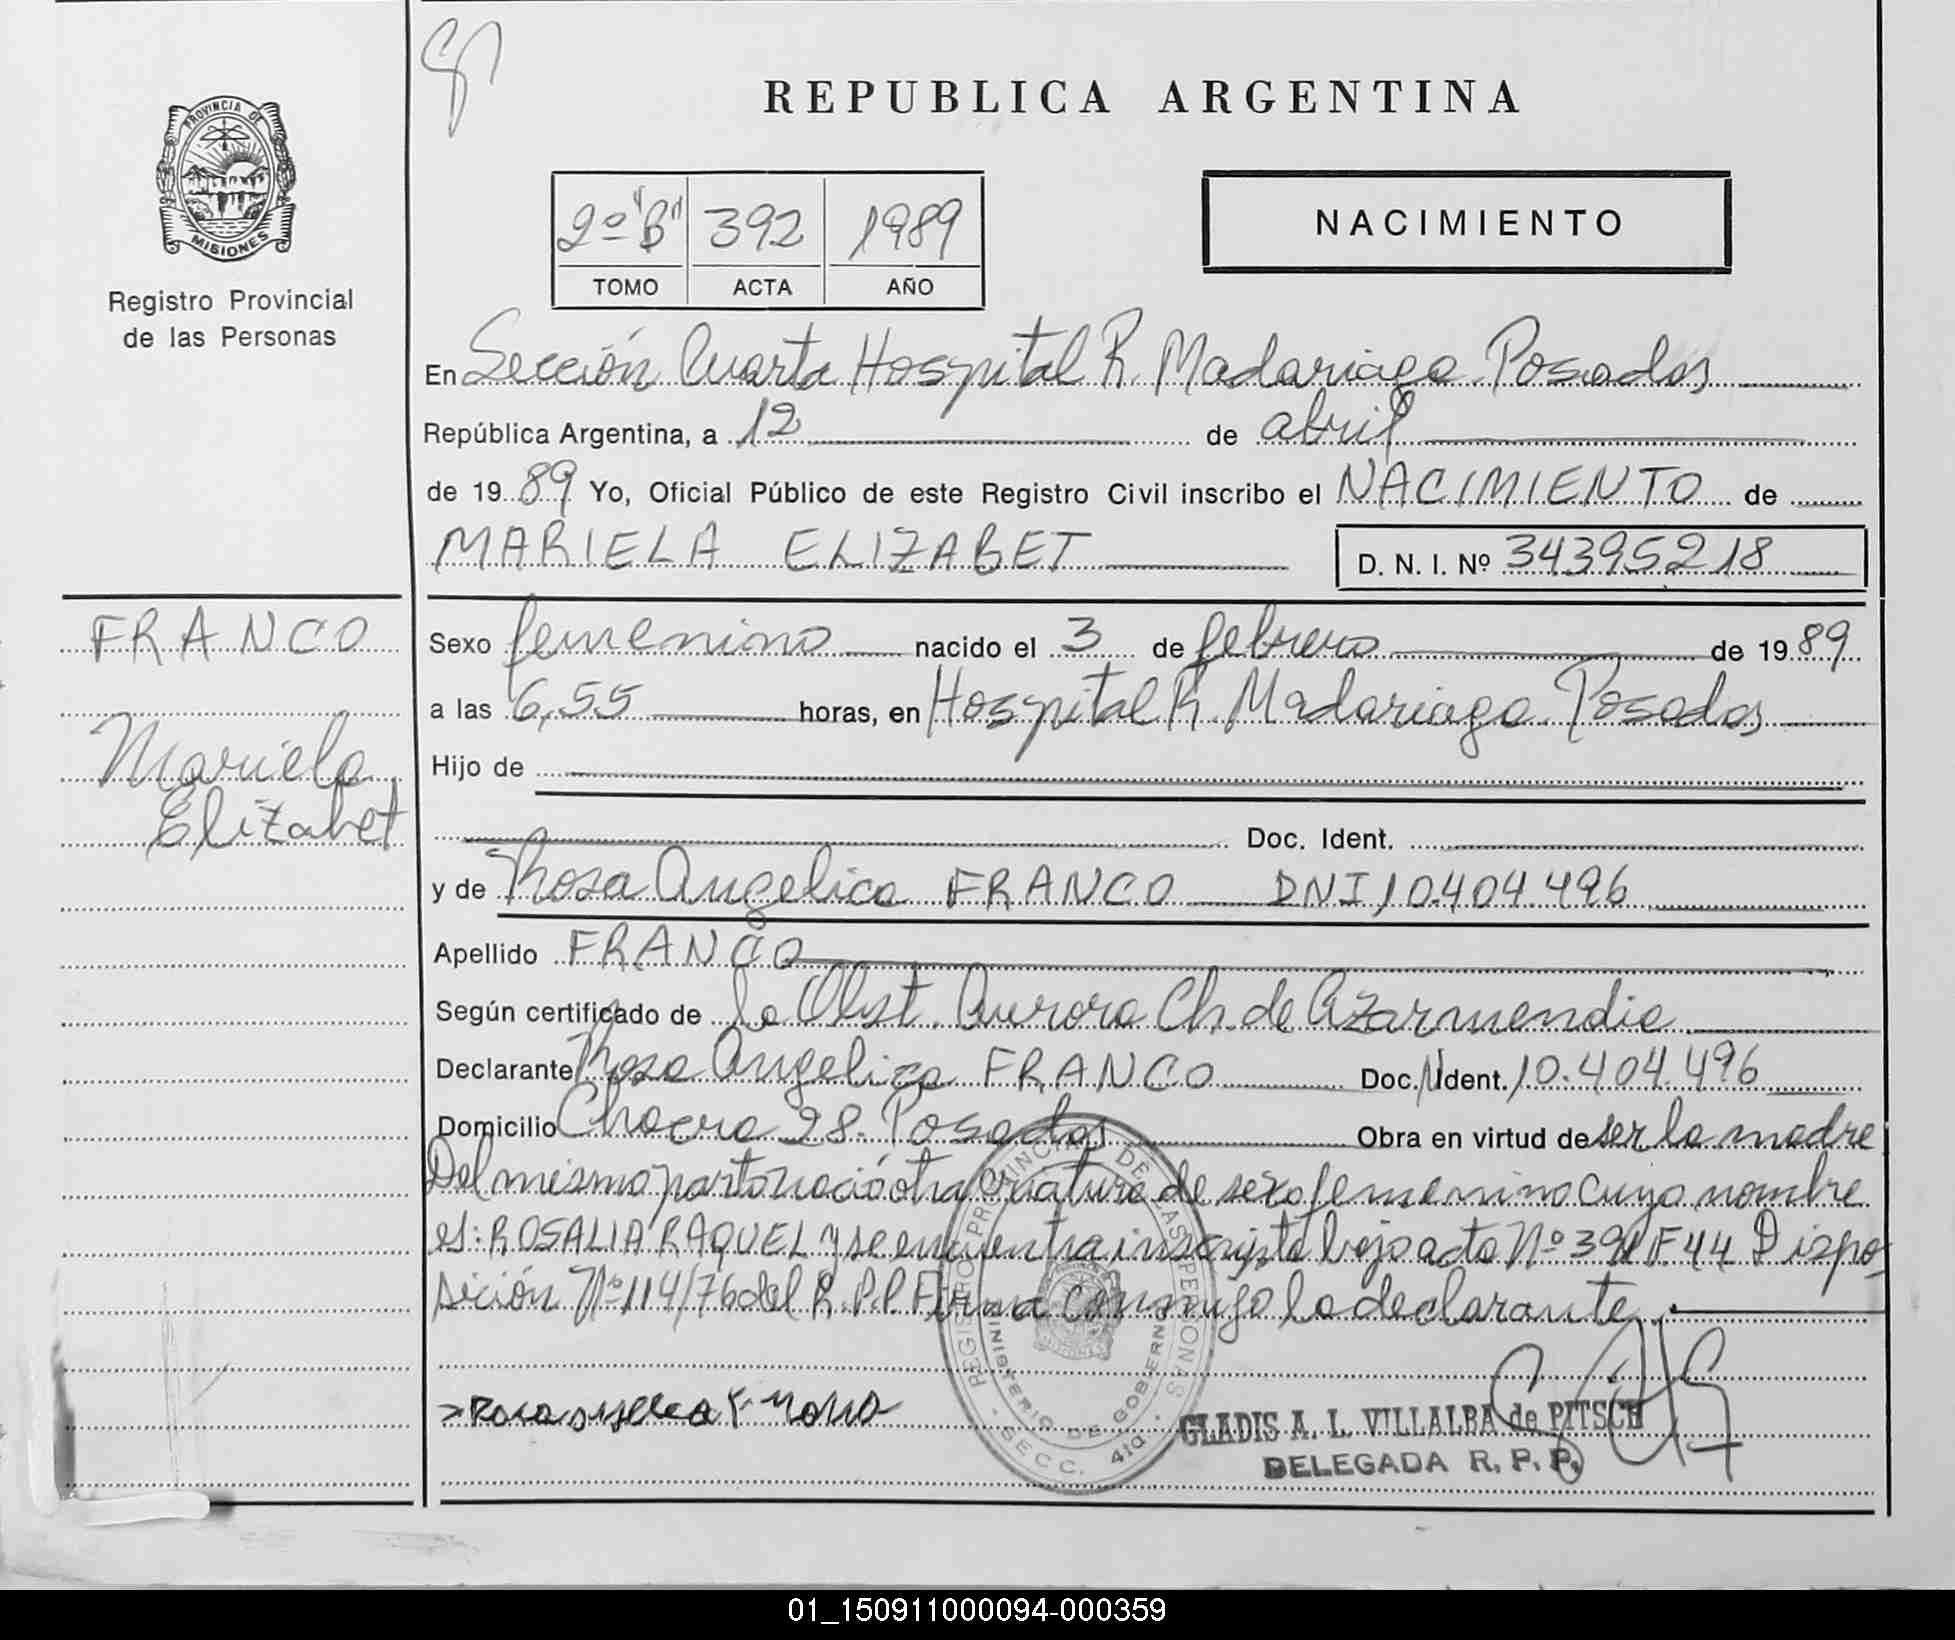 REPUBLICA ARGENTINA
PROVINCIA DE
MISIONES
Registro Provincial
de las Personas
2º "B" 392 1989
TOMO ACTA AÑO
NACIMIENTO
En Sección Cuarta Hospital R. Madariaga Posadas
República Argentina, a 12 de abril
de 1989 Yo, Oficial Público de este Registro Civil inscribo el NACIMIENTO de
MARIELA ELIZABET D. N. I. Nº 34395218
FRANCO
Mariela
Elizabet
Sexo femenino nacido el 3 de febrero de 1989
a las 6,55 horas, en Hospital R. Madariaga. Posadas
Hijo de
Doc. Ident.
y de Rosa Angelica FRANCO DNI 10.404.496
Apellido FRANCO
Según certificado de la Obst. Aurora Ch. de Azarmendia
Declarante Rosa Angelica FRANCO Doc. Ident. 10.404.496
Domicilio Chacra 28. Posadas Obra en virtud de ser la madre
Del mismo parto nació otra criatura de sexo femenino cuyo nombre
es: ROSALIA RAQUEL y se encuentra inscripta bajo acta Nº 391 F 44 Dispo-
sición Nº 114/76 del R.P.P. Firma conmigo la declarante.
REGISTRO PROVINCIAL DE LAS PERSONAS
MINISTERIO DE GOBIERNO
SECC. 4ta
GLADIS A. L. VILLALBA de PITSCH
DELEGADA R. P. P.
01_150911000094-000359